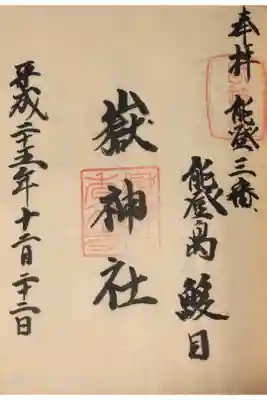 奉拝 能登三番
能登島 鰀目
嶽神社
平成二十五年十二月二十二日